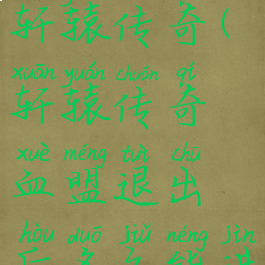 轩辕传奇(
xuān yuán chuán qí
轩辕传奇
xuè méng tuì chū
血盟退出
hòu duō jiǔ néng jìn
后多久能进